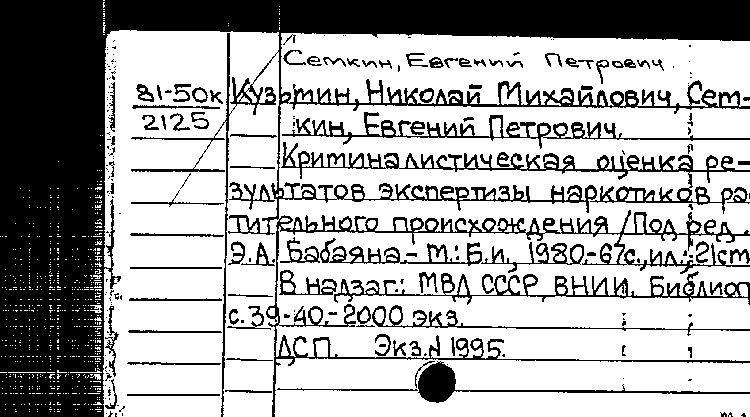 Сеткин, Евгений Петрович.
81-50к Кузьмин, Николай Михайлович, Сет-
2125 кин, Евгений Петрович.
Криминалистическая оценка ре-
зультатов экспертизы наркотиков рас
тительного происхождения /Под ред.
Э.А. Бабаяна.- М.: Б.и., 1980.-67с., ил.; 21см
В надзаг.: МВД СССР, ВНИИ. Библиог
с. 39-40.- 2000 экз.
ДСП. Экз.N 1995.